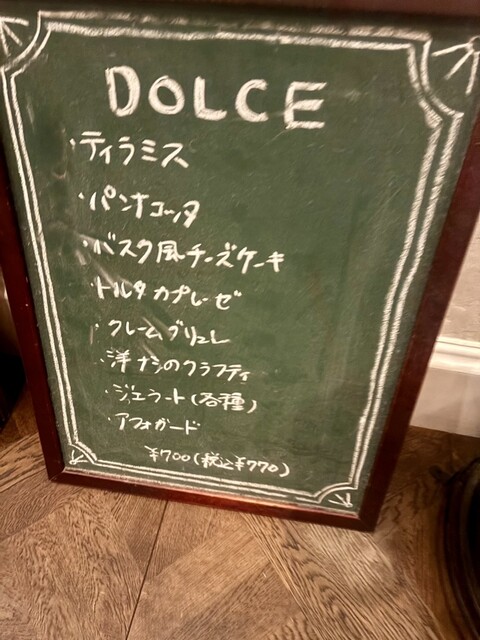 DOLCE
・ティラミス
・パンナコッタ
・バスク風チーズケーキ
・トルタ カプレーゼ
・クレームブリュレ
・洋ナシのクラフティ
・ジェラート(各種)
・アフォガード
¥700(税込¥770)